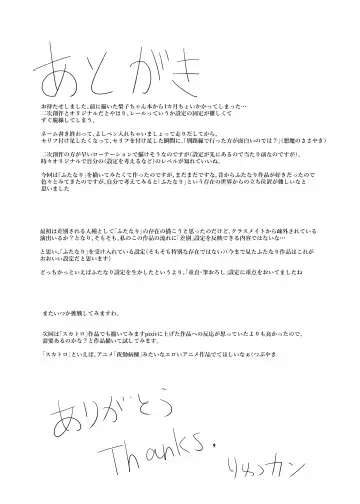 あとがき
お待たせしました、前に描いた梨子ちゃん本から1カ月ちょいかかってしまった…
二次創作とオリジナルだとやはり、レールっていうか設定の固定が難しくて
すぐ脱線してしまう。
ネーム書き終わって、よしペン入れちゃいましょって走りだしてから、
セリフ付け足したくなって、セリフを付け足した瞬間に、「別路線で行った方が面白いのでは?」(悪魔のささやき)
二次創作の方が早いローテーションで描けそうなのですが(設定が先にあるので当たり前なのですが)、
時々オリジナルで自分の(設定を考えるなど)のレベルが知れていいね。
今回は「ふたなり」を描いてみたくて作ったのですが、まだまだですな、昔からふたなり作品が好きだったので
色々とみてきたのですが、自分で考えてみると「ふたなり」という存在の世界からの立ち位置が難しいなと
思いました
最初は差別される人種として「ふたなり」の存在の描こうと思ったのだけど、クラスメイトから疎外されている
演出いるか?となり、そもそも、私のこの作品の流れに「差別」設定を反映できる内容ではないな…
と思い、「ふたなり」を受け入れている設定(そもそも特別な存在ではない)(今まで見たふたなり作品はこれが
おおいい設定だと思います)
どっちかっといえばふたなり設定を生かしたというより、「童貞・筆おろし」設定に重点をおいてましたね
またいつか挑戦してみますわ。
次回は「スカトロ」作品でも描いてみますpixivに上げた作品への反応が思っていたよりも良かったので、
需要あるのかな?と作品描いて試してみます。
「スカトロ」といえば、アニメ「夜勤病棟」みたいなエロいアニメ作品でてほしいなぁ(つぶやき
ありがとう
Thanks.